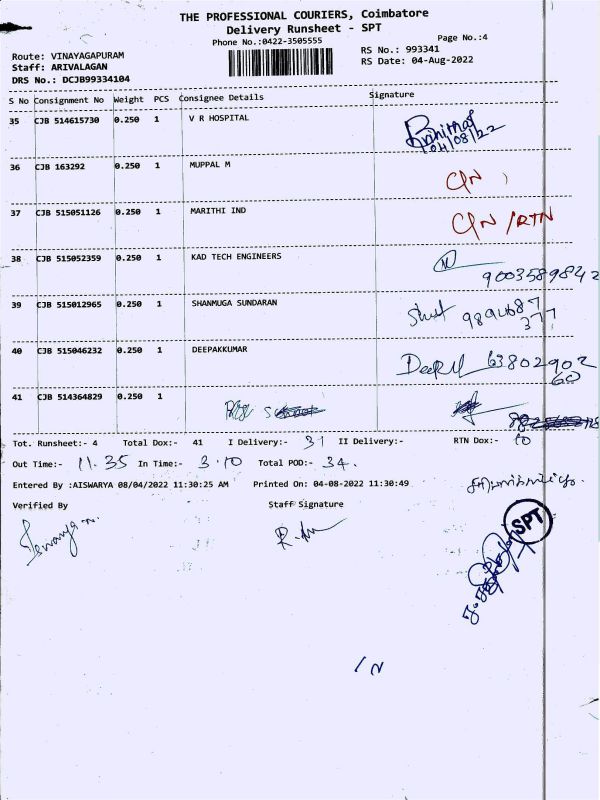 THE PROFESSIONAL COURIERS, Coimbatore
Delivery Runsheet - SPT
Phone No.:0422-3505555
Page No.:4
Route: VINAYAGAPURAM
RS No.: 993341
Staff: ARIVALAGAN
RS Date: 04-Aug-2022
DRS No.: DCJB99334104
S No Consignment No Weight PCS Consignee Details Signature
35 CJB 514615730 0.250 1 V R HOSPITAL
04/08/22
36 CJB 163292 0.250 1 MUPPAL M C/N
37 CJB 515051126 0.250 1 MARITHI IND C/N /RTN
38 CJB 515052359 0.250 1 KAD TECH ENGINEERS
9003589842
39 CJB 515012965 0.250 1 SHANMUGA SUNDARAN
377
40 CJB 515046232 0.250 1 DEEPAKKUMAR 63802902
60
41 CJB 514364829 0.250 1
Tot. Runsheet:- 4 Total Dox:- 41 I Delivery:- 31 II Delivery:- RTN Dox:- 10
Out Time:- 11.35 In Time:- 3.10 Total POD:- 34.
Entered By :AISWARYA 08/04/2022 11:30:25 AM Printed On: 04-08-2022 11:30:49
Verified By Staff Signature
SPT